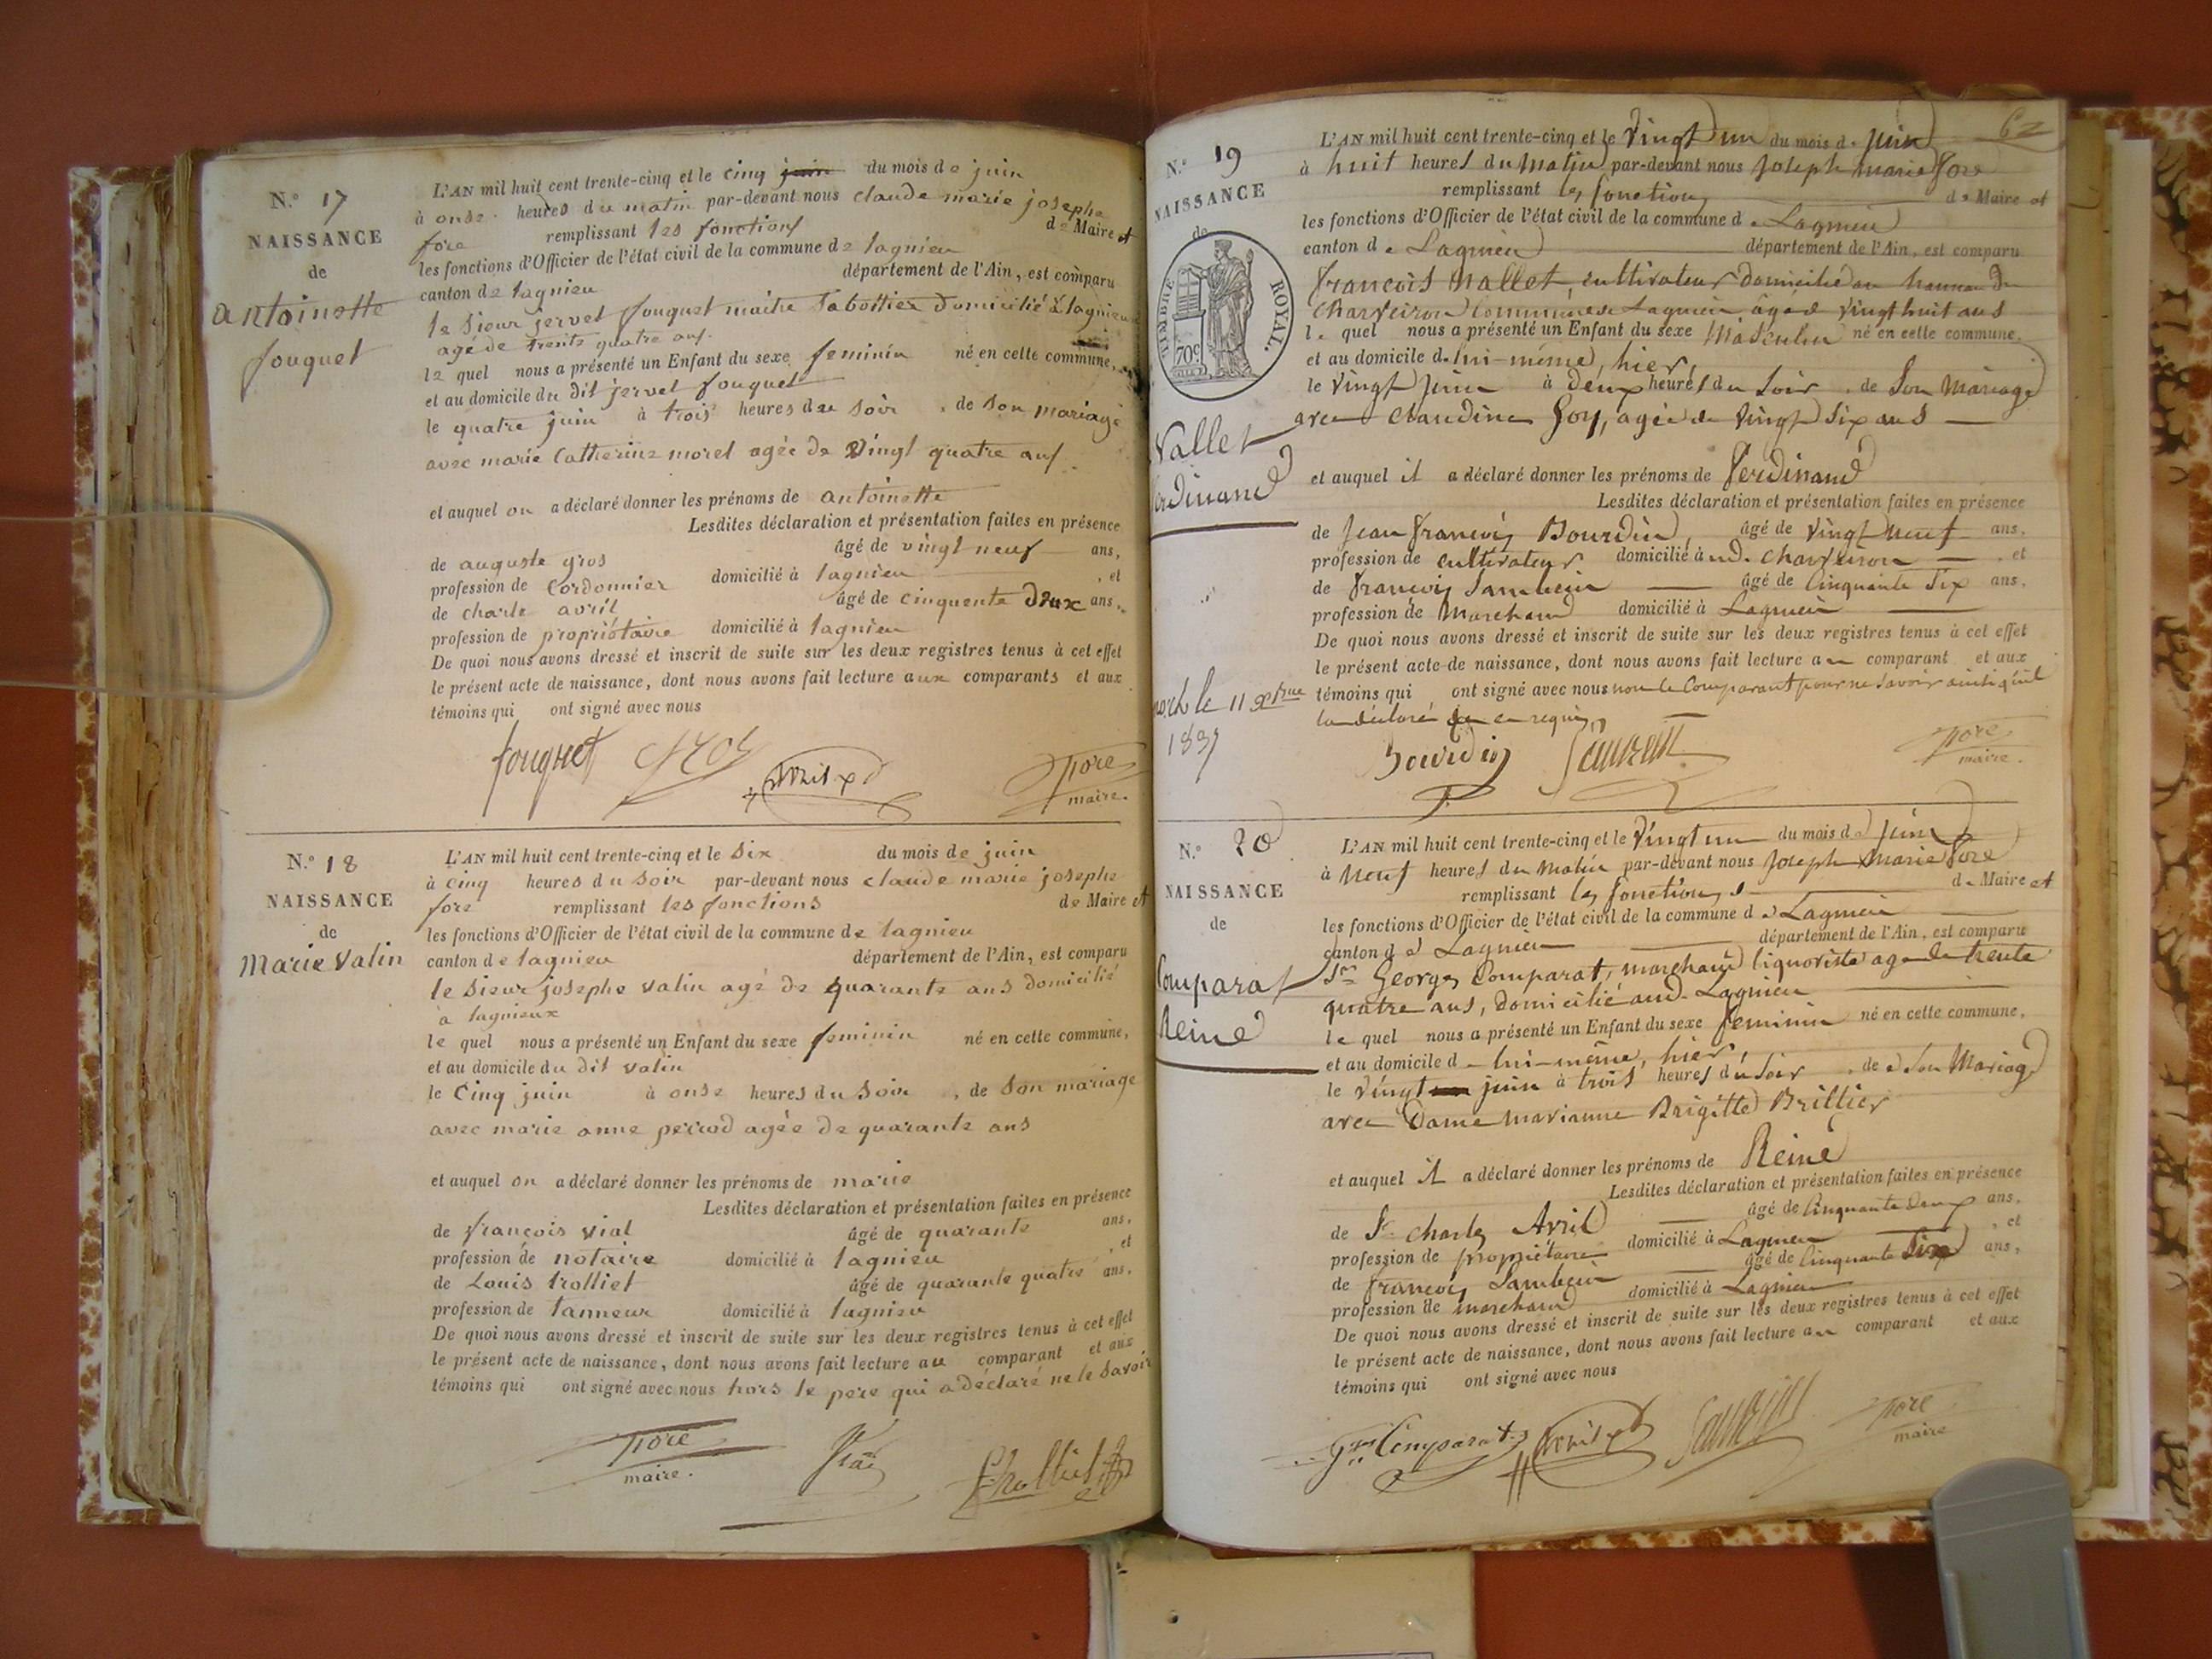 N.° 17
NAISSANCE
de
antoinette
fouquet
L'AN mil huit cent trente-cinq et le cinq juin du mois de juin
à onze heures du matin par-devant nous claude marie josephe
fore remplissant les fonctions de Maire et
les fonctions d'Officier de l'état civil de la commune de lagnieu
canton de lagnieu département de l'Ain, est comparu
le sieur jervet fouquet maitre sabottier domicilié à lagnieu
agé de trente quatre ans
le quel nous a présenté un Enfant du sexe feminin né en cette commune,
et au domicile du dit jervet fouquet
le quatre juin à trois heures du soir, de son mariage
avec marie Catherine morel agée de vingt quatre ans
et auquel on a déclaré donner les prénoms de antoinette
Lesdites déclaration et présentation faites en présence
de auguste gros âgé de vingt neuf ans,
profession de cordonnier domicilié à lagnieu, et
de charle avril âgé de cinquente deux ans,
profession de propriétaire domicilié à lagnieu
De quoi nous avons dressé et inscrit de suite sur les deux registres tenus à cet effet
le présent acte de naissance, dont nous avons fait lecture aux comparants et aux
témoins qui ont signé avec nous
fouquet gros avril fore
maire.
N.° 18
NAISSANCE
de
Marie Valin
L'AN mil huit cent trente-cinq et le six du mois de juin
à cinq heures du soir par-devant nous claude marie josephe
fore remplissant les fonctions de Maire et
les fonctions d'Officier de l'état civil de la commune de lagnieu
canton de lagnieu département de l'Ain, est comparu
le sieur josephe valin agé de quarante ans domicilié
à lagnieux
le quel nous a présenté un Enfant du sexe feminin né en cette commune,
et au domicile du dit valin
le cinq juin à onze heures du soir, de son mariage
avec marie anne perrod agée de quarante ans
et auquel on a déclaré donner les prénoms de marie
Lesdites déclaration et présentation faites en présence
de françois vial âgé de quarante ans,
profession de notaire domicilié à lagnieu, et
de Louis trolliet âgé de quarante quatre ans,
profession de tanneur domicilié à lagnieu
De quoi nous avons dressé et inscrit de suite sur les deux registres tenus à cet effet
le présent acte de naissance, dont nous avons fait lecture au comparant et aux
témoins qui ont signé avec nous hors le pere qui a déclaré ne le savoir
fore Vial Trolliet
maire.
62
N.° 19
NAISSANCE
de
TIMBRE ROYAL.
70c
Vallet
ferdinand
mort le 11 xbre
1837
L'AN mil huit cent trente-cinq et le vingt un du mois de juin
à huit heures du matin par-devant nous Joseph marie fore
remplissant les fonctions de Maire et
les fonctions d'Officier de l'état civil de la commune de Lagnieu
canton de Lagnieu département de l'Ain, est comparu
françois Vallet, cultivateur domicilié au hameau de
Charveiron Commune de Lagnieu âgé de vingt huit ans
le quel nous a présenté un Enfant du sexe Masculin né en cette commune,
et au domicile de lui-même, hier,
le vingt juin à deux heures du soir, de son Mariage
avec Claudine Goy, agée de vingt six ans
et auquel il a déclaré donner les prénoms de ferdinand
Lesdites déclaration et présentation faites en présence
de Jean françois Bourdin, âgé de vingt neuf ans,
profession de cultivateur domicilié aud. Charveiron, et
de françois Sambein âgé de Cinquante six ans,
profession de Marchand domicilié à Lagnieu
De quoi nous avons dressé et inscrit de suite sur les deux registres tenus à cet effet
le présent acte de naissance, dont nous avons fait lecture au comparant et aux
témoins qui ont signé avec nous non le Comparant pour ne savoir ainsi qu'il
la déclaré de ce requis
Bourdin fore
maire.
N.° 20
NAISSANCE
de
Comparat
Reine
L'AN mil huit cent trente-cinq et le vingt un du mois de juin
à neuf heures du matin par-devant nous Joseph marie fore
remplissant les fonctions de Maire et
les fonctions d'Officier de l'état civil de la commune de Lagnieu
canton de Lagnieu département de l'Ain, est comparu
Sr Georges Comparat, marchand liquoriste agé de trente
quatre ans, domicilié aud. Lagnieu
le quel nous a présenté un Enfant du sexe feminin né en cette commune,
et au domicile de lui-même, hier,
le vingt juin à trois heures du soir, de son Mariage
avec Dame marianne Brigitte Brillier
et auquel il a déclaré donner les prénoms de Reine
Lesdites déclaration et présentation faites en présence
de Sr charles Avril âgé de Cinquante deux ans,
profession de propriétaire domicilié à Lagnieu, et
de françois Sambein âgé de Cinquante six ans,
profession de marchand domicilié à Lagnieu
De quoi nous avons dressé et inscrit de suite sur les deux registres tenus à cet effet
le présent acte de naissance, dont nous avons fait lecture au comparant et aux
témoins qui ont signé avec nous
Comparat avril fore
maire